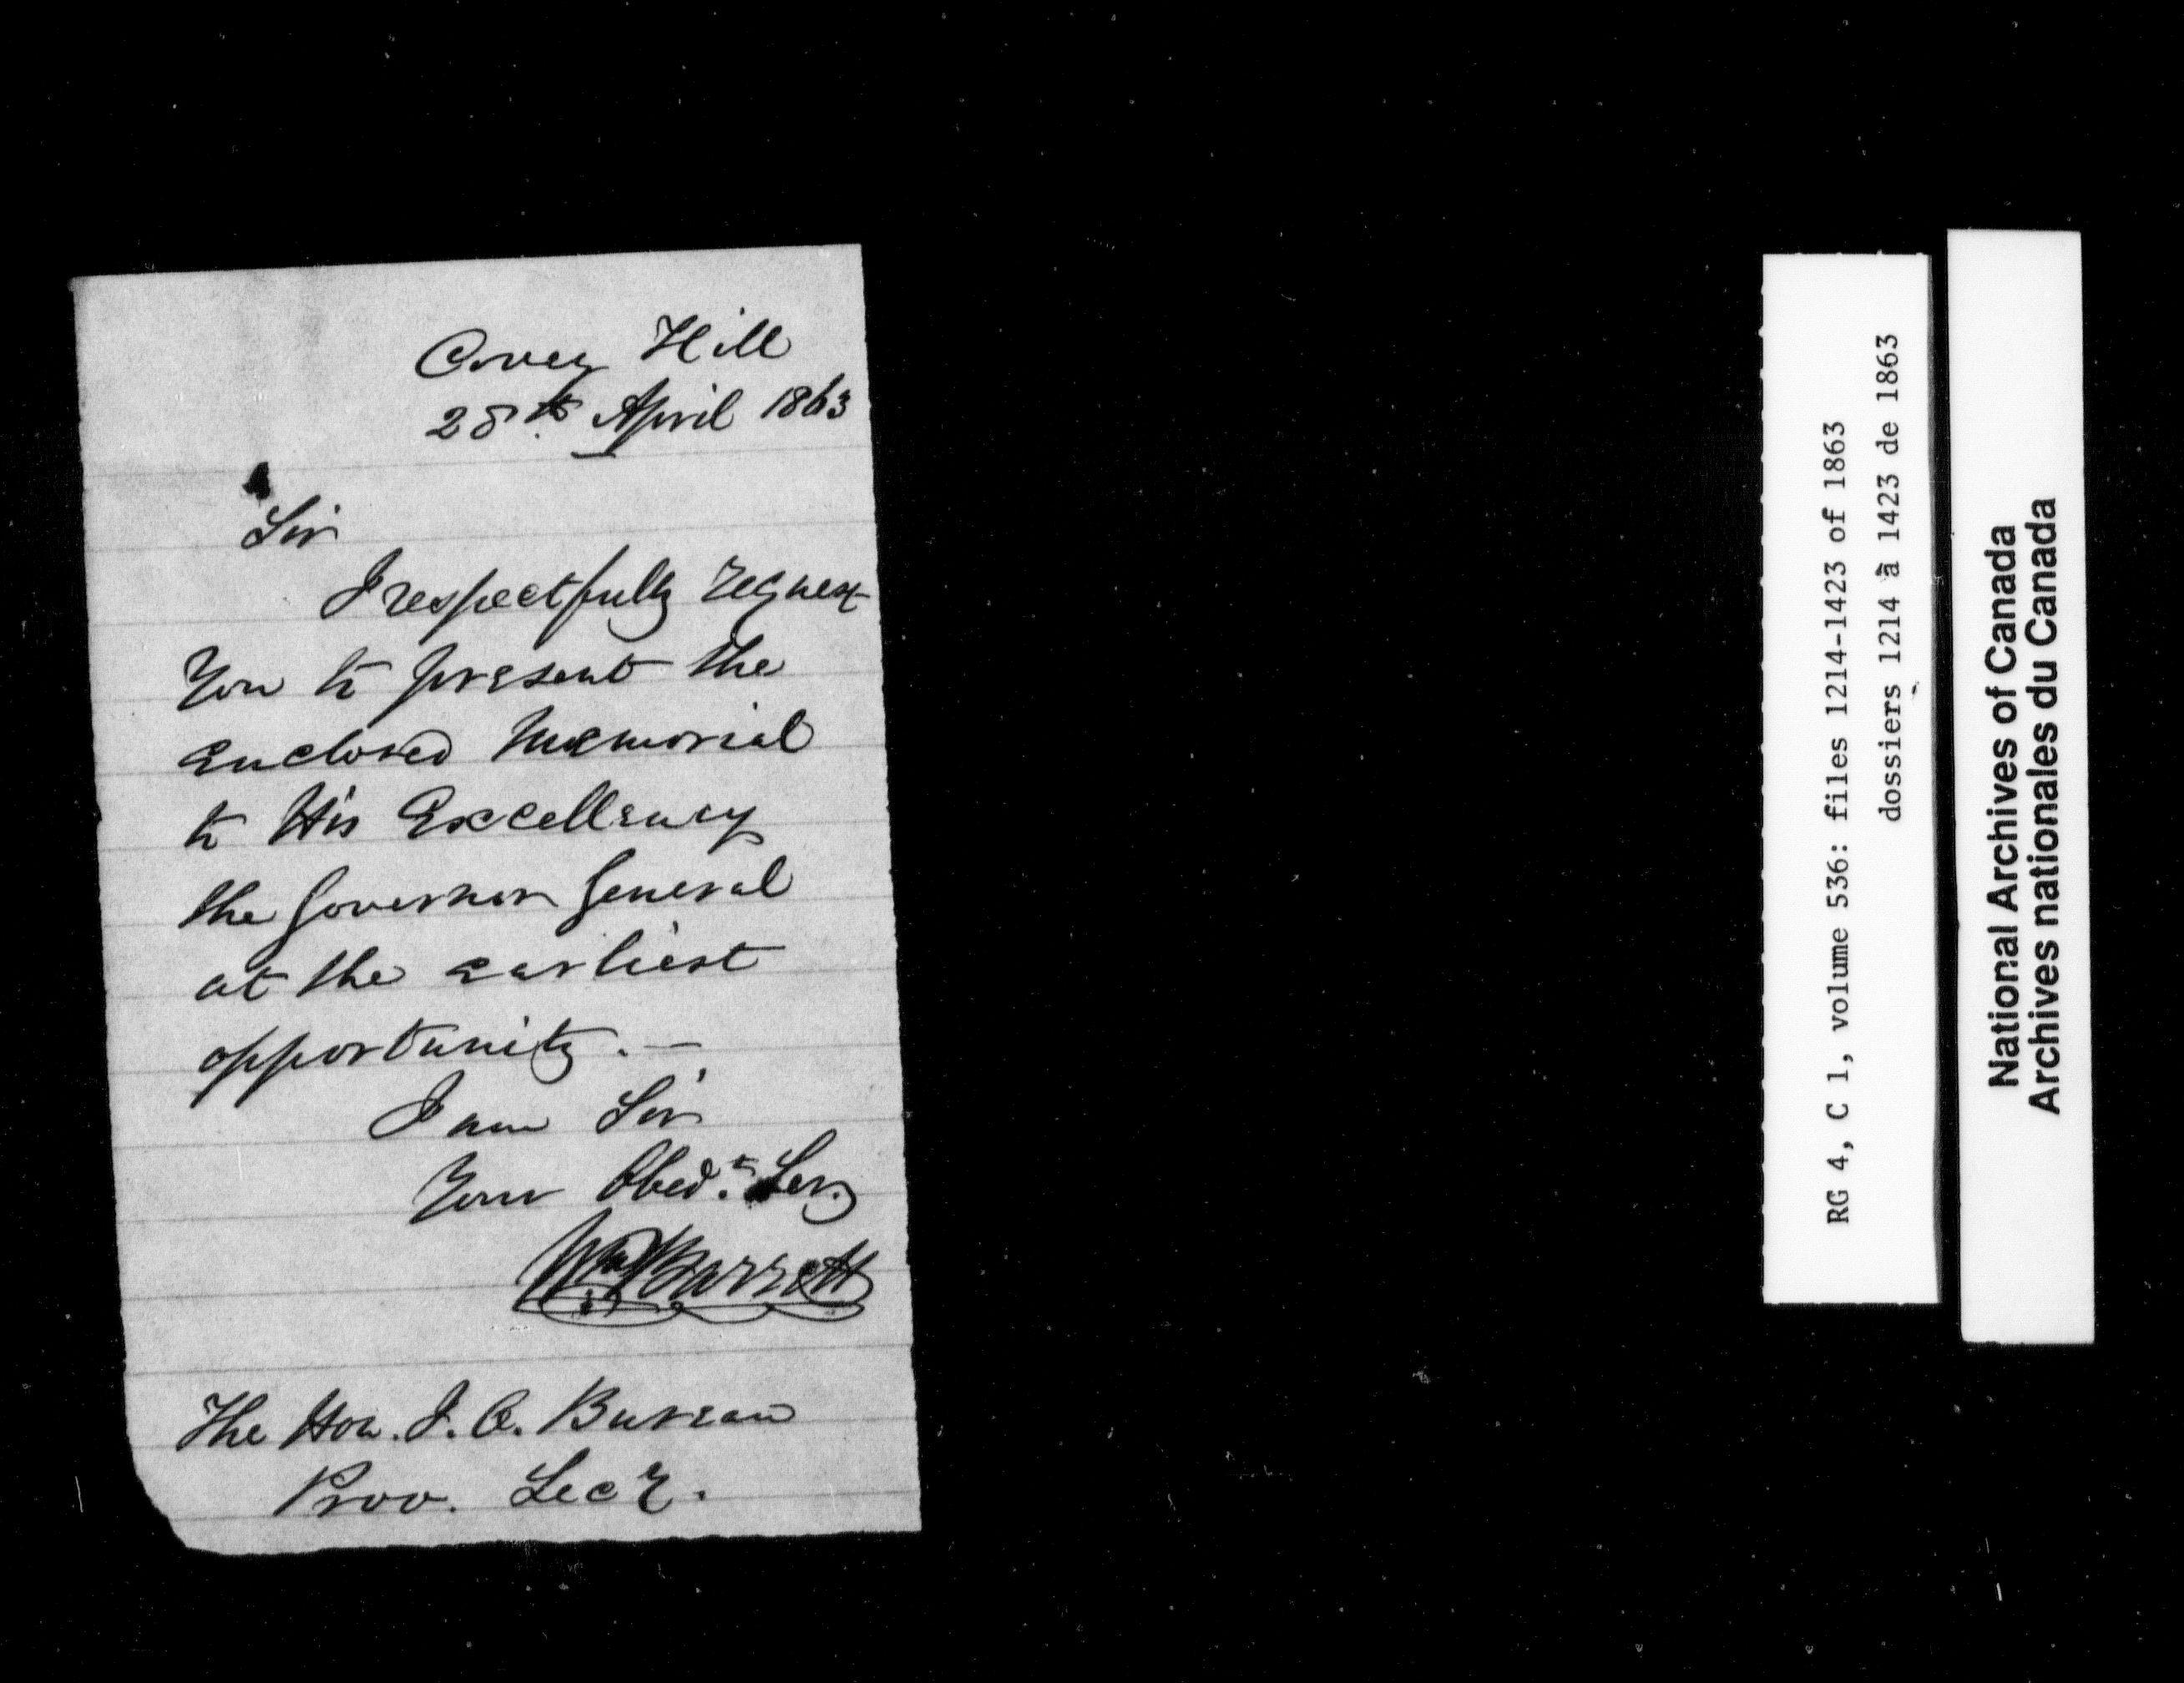 Covey Hill
28th April 1863
Sir
I respectfully request
You to present the
enclosed Memorial
to His Excellency
the Governor General
at the earliest
opportunity. —
I am Sir
Your Obedt. Serv
Wm Barrett
The Hon. J. O. Bureau
Prov. Secy.
RG 4, C 1, volume 536: files 1214-1423 of 1863
dossiers 1214 à 1423 de 1863
National Archives of Canada
Archives nationales du Canada